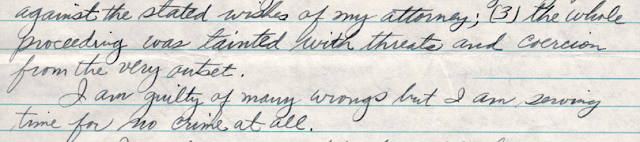 against the stated wishes of my attorney; (3) the whole
proceeding was tainted with threats and coercion
from the very outset.
I am guilty of many wrongs but I am serving
time for no crime at all.